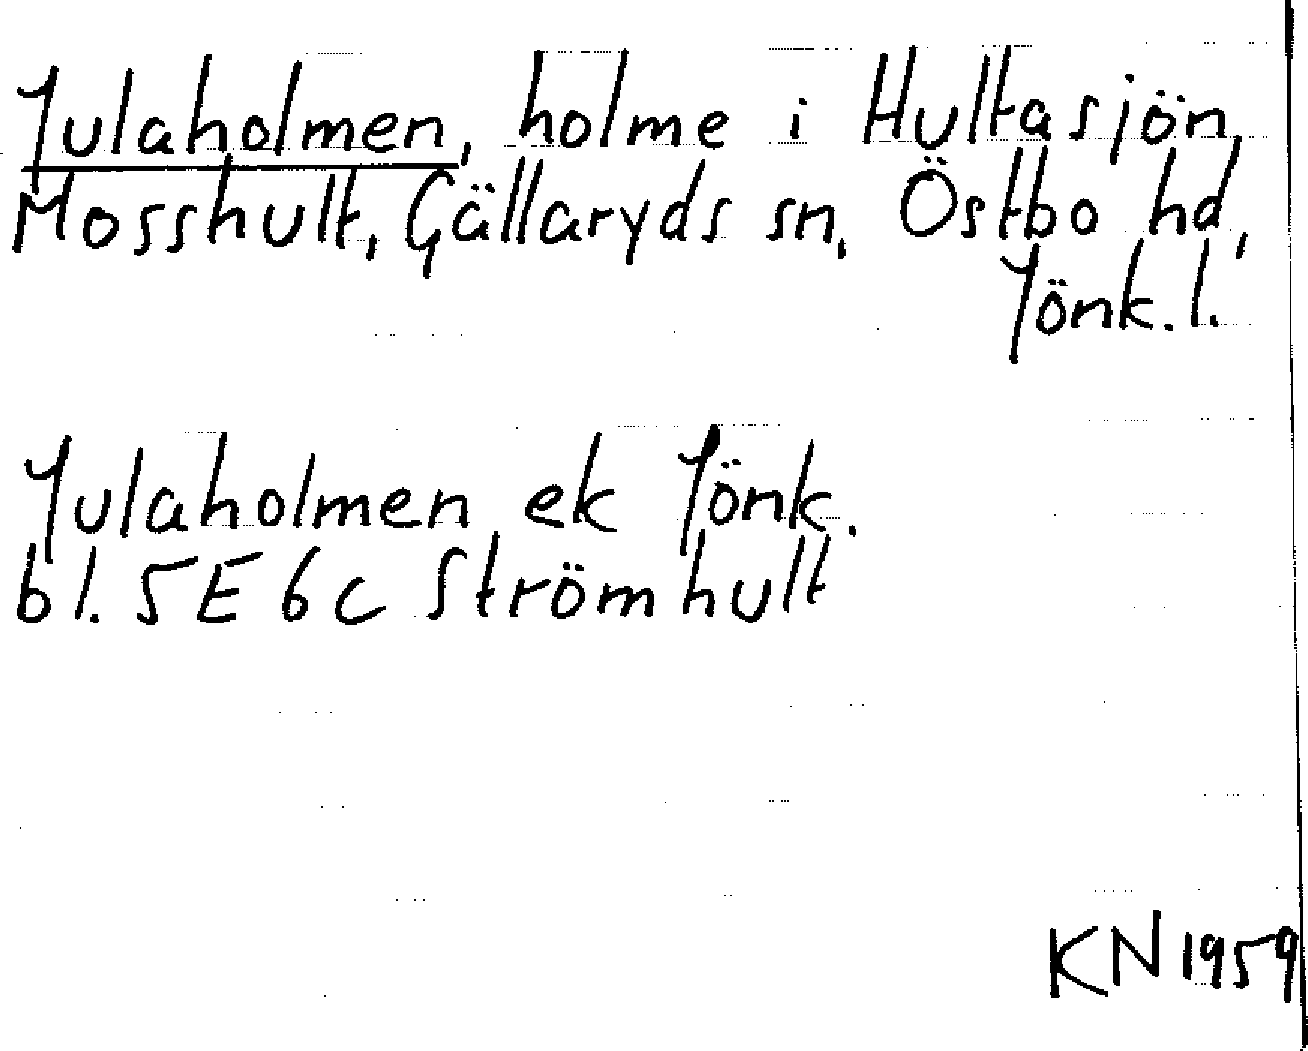 Julaholmen, holme i Hultasjön,
Mosshult, Gällaryds sn, Östbo hd,
Jönk.l.
Julaholmen ek Jönk.
bl. 5E 6c Strömhult
KN 1959